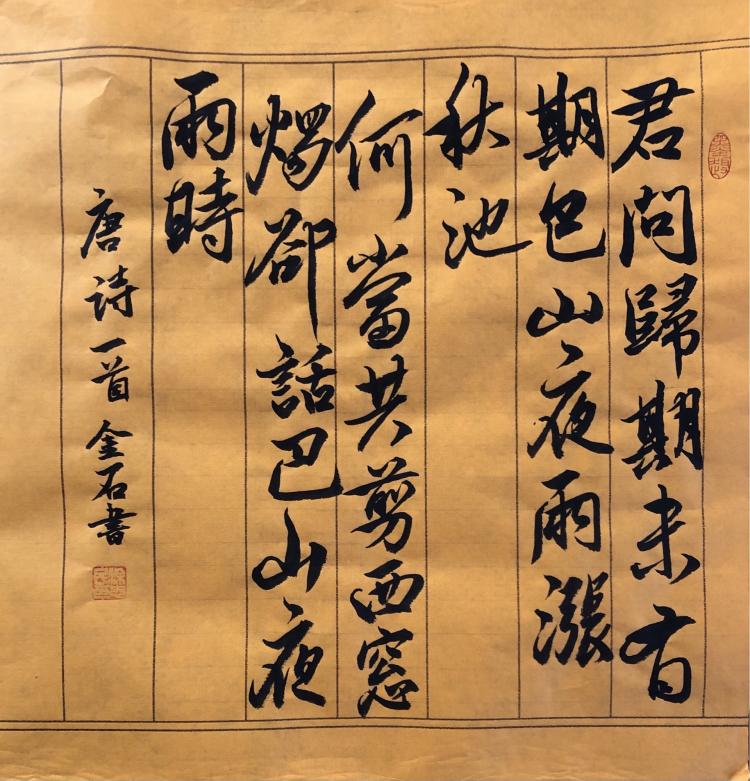 君問歸期未有
期包山夜雨漲
秋池
何當共剪西窓
燭卻話巴山夜
雨時
唐詩一首 金石書